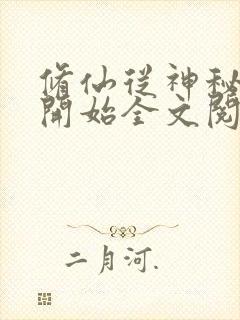 脩仙從神秘
開始全文閱
二月河.